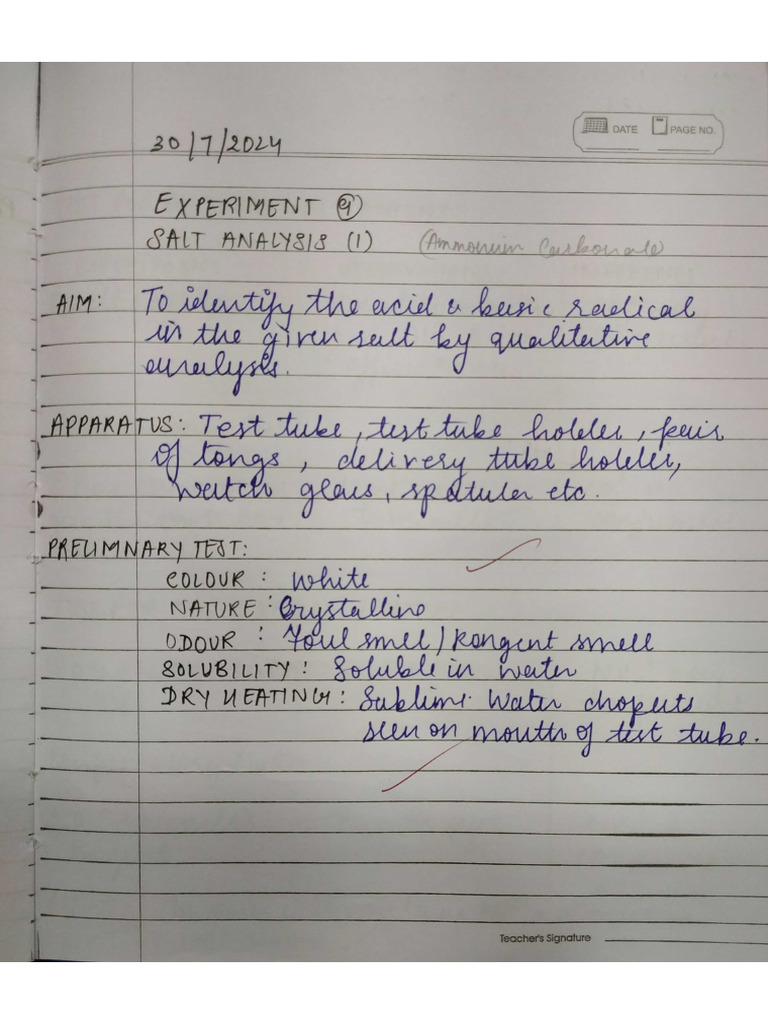 DATE PAGE NO.
30/7/2024
EXPERIMENT 9
SALT ANALYSIS (1) (Ammonium Carbonate)
AIM: To identify the acid & basic radical
in the given salt by qualitative
analysis.
APPARATUS: Test tube, test tube holder, pair
of tongs, delivery tube holder,
watch glass, spatula etc.
PRELIMNARY TEST:
COLOUR : White
NATURE : Crystalline
ODOUR : Foul smell / Rongent smell
SOLUBILITY : Soluble in water
DRY HEATING : Sublime. Water droplets
seen on mouth of test tube.
Teacher's Signature